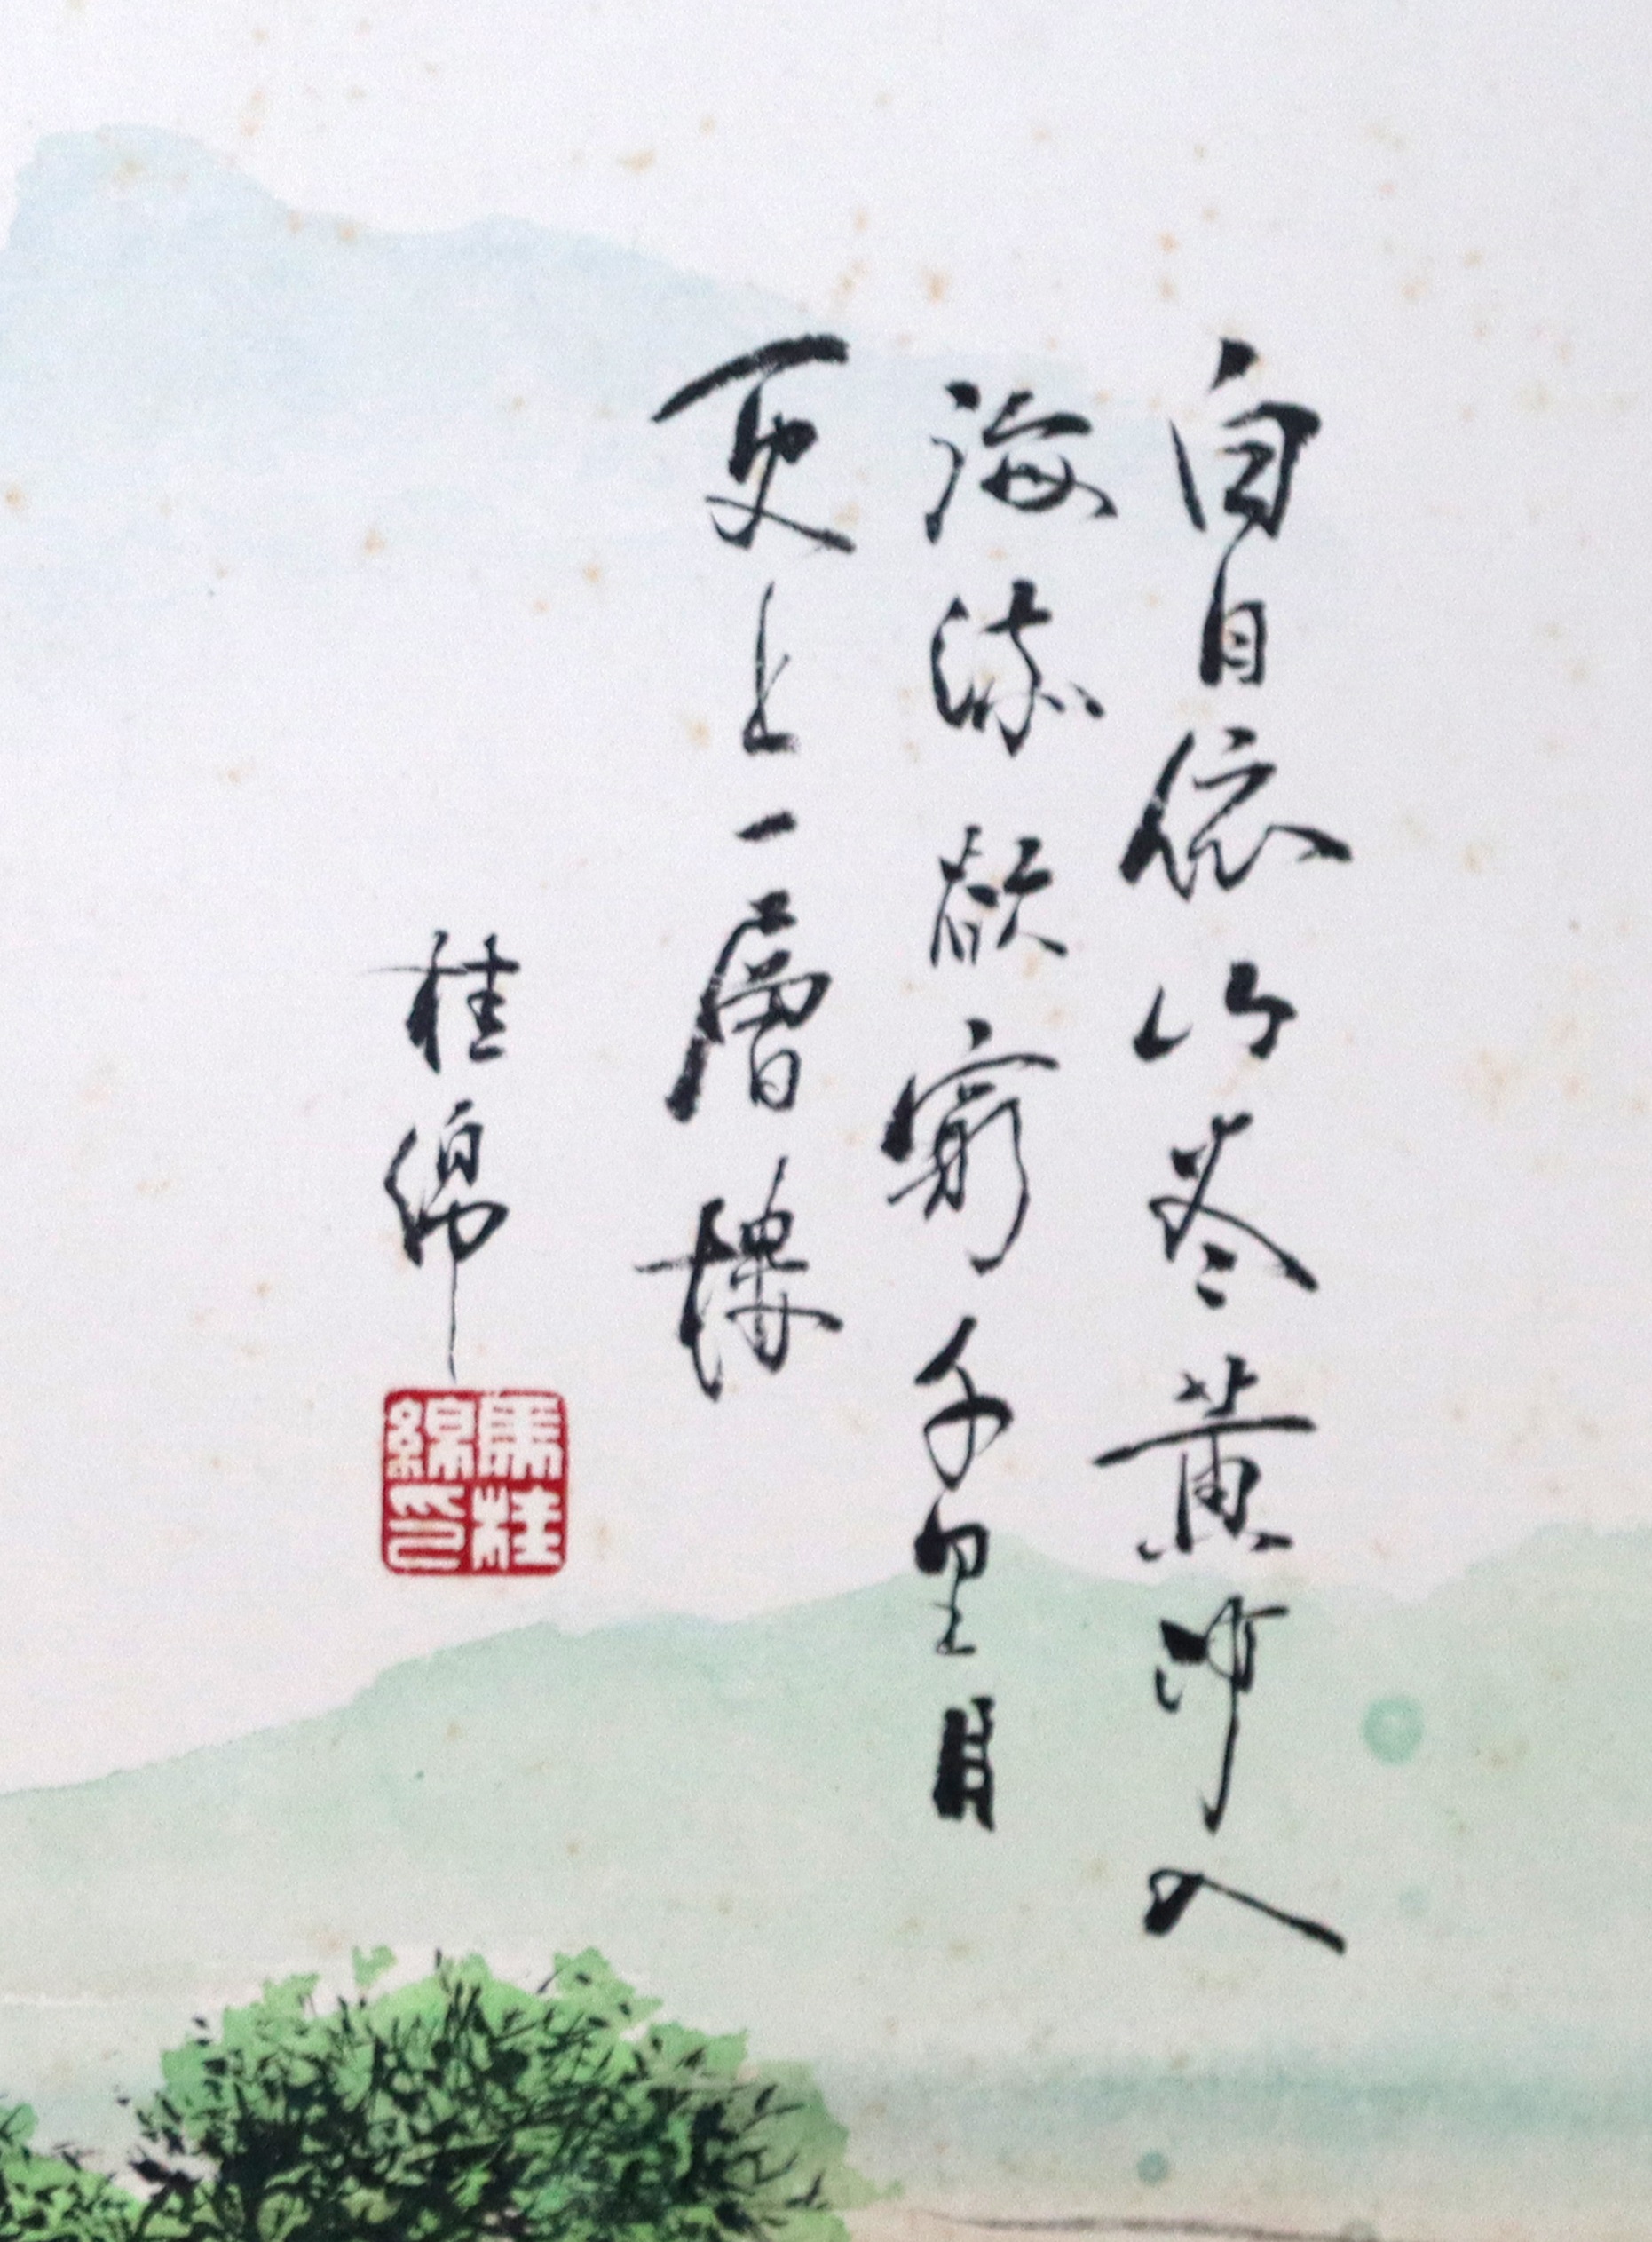 白日依山尽黄河入
海流欲窮千里目
更上一層樓
桂綿
馬桂
綿印